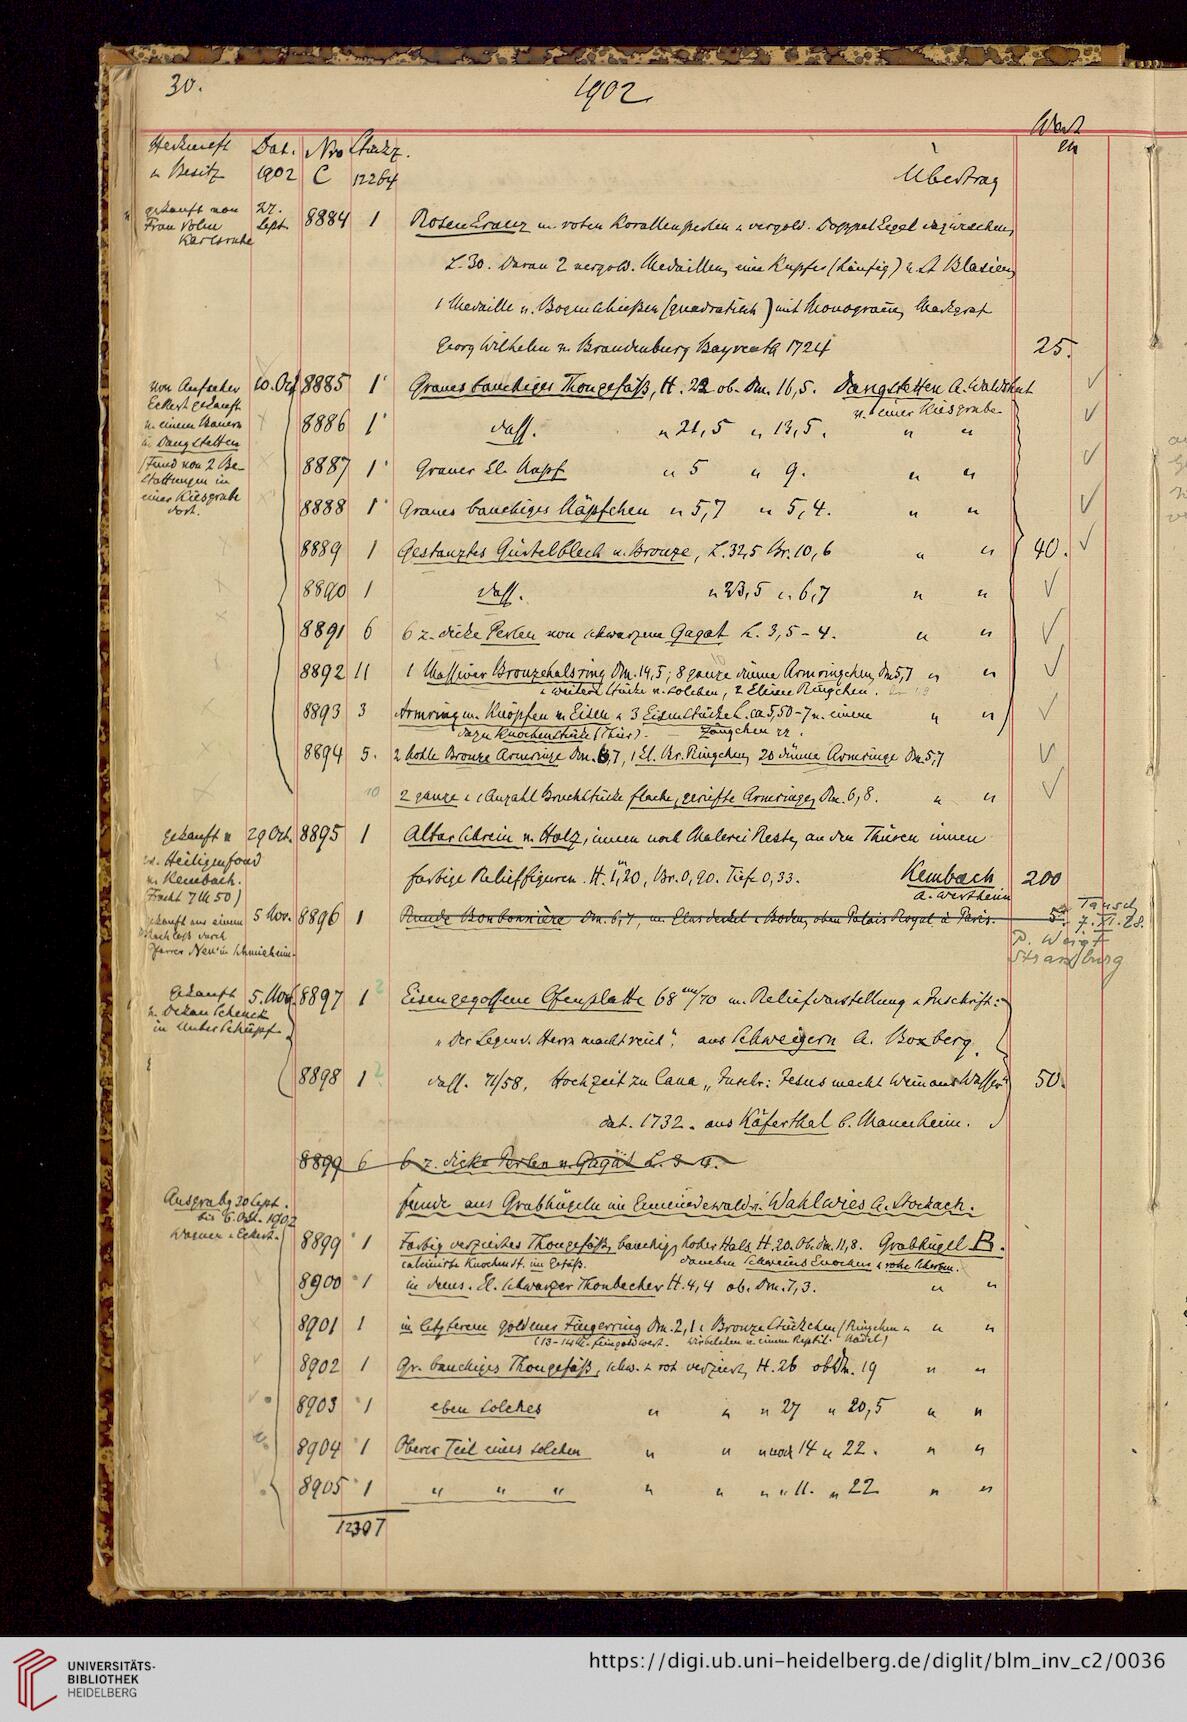 30.
1902
Wert
Herkunft Dat. Nro Stückz.
u Besitz 1902 C 12264 Übertrag
gekauft von 27. 8884 1 Rosenkranz m. roten Korallenperlen u vergold. Doppelkegel dazwischen,
Frau Sept.
Karlsruhe
L. 30. Daran 2 vergold. Medaillen, eine Kupfer (häufig) v. St Blasien,
1 Medaille v. Bogenschießen (quadratisch) mit Monogramm Markgraf
Georg Wilhelm v. Brandenburg Bayreuth 1724 25.
von Aufseher 10. Oct. 8885 1 Graues bauchiges Thongefäß, H. 22 ob. Dm. 16,5. Dangstetten A. Waldshut
Eckert gekauft v. einer Kiesgrube
v. einem Bauern 8886 1 dass. " 21,5 " 13,5. " "
in Dangstetten
(Fund von 2 Be- 8887 1 Grauer kl. Napf " 5 " 9. " "
stattungen in
einer Kiesgrube 8888 1 Graues bauchiges Näpfchen " 5,7 " 5,4. " "
dort.
8889 1 Gestanztes Gürtelblech v. Bronze, L. 32,5 Br. 10,6 " " 40.
8890 1 dass. " 23,5 " 6,7 " "
8891 6 6 z. dicke Perlen von schwarzem Gagat L. 3,5 – 4. " "
8892 11 1 Massiver Bronzehalsring Dm. 14,5; 8 ganze dünne Armringchen, Dm 5,7 " "
u weitere Stücke v. solchen, 2 kleine Ringchen.
8893 3 Armring m. Knöpfen v. Eisen u 3 Eisenstücke L. ca 5,50 – 7 v. einem " "
dazu Knochenstücke (Thier). — Zängchen
8894 5. 2 hohle Bronze Armringe Dm. 6,7, 1 kl. Br. Ringchen, 20 dünne Armringe Dm. 5,7
10 2 ganze u 1 Anzahl Bruchstücke flache, geriefte Armringe, Dm. 6,8. " "
gekauft v 29 Oct. 8895 1 Altarschrein v. Holz, innen noch Malerei Reste, an den Thüren innen
Heiligenfond
v. Kembach. farbige Relieffiguren. H. 1,20, Br. 0,90. Tiefe 0,33. Kembach 200
(Fracht 7 M 50) A. Wertheim
gekauft aus einem 5 Nov. 8896 1 Runde Bonbonnière Dm. 6,7, m. Glasdeckel u Boden, oben Palais Royal à Paris. 5. Tausch
Nachlaß durch 7. XI. 28.
Pfarrer Neu in Schmieheim. P. Weigt
Strassburg
Gekauft 5. Nov. 8897 1 Eisengegossene Ofenplatte 68 cm/70 m. Reliefdarstellung u Inschrift:
v. Dekan Schenck
in Unter Schüpf „Der Segen d. Herrn macht reich", aus Schweigern A. Boxberg.
8898 1 dass. 71/58, Hochzeit zu Cana „Inschr: Jesus macht Wein aus Wasser" 50.
dat. 1732. aus Käferthal b. Mannheim.
8899 6 6 z. dicke Perlen v. Gagat L. 3 4.
Ausgrabg 30 Sept. Funde aus Grabhügeln im Gemeindewald v. Wahlwies A. Stockach.
bis 6. Oct. 1902
Wagner u Eckert. 8899 1 Farbig verziertes Thongefäß, bauchig, hoher Hals. H. 20. Ob. Dm. 11,8. Grabhügel B.
calcinirte Knochen im Gefäß. daneben Schweins Knochen u rohe Scherben.
8900 1 in dems. kl. schwarzer Thonbecher H. 4,4 ob. Dm. 7,3. " "
8901 1 in letzterem goldener Fingerring Dm. 2,1 u Bronze Stückchen (Ringchen u " "
(13 – 14 M. Feingoldwert. Wirbelchen v. einem Reptil. Nadel)
8902 1 Gr. bauchiges Thongefäß, schw. u rot verziert, H. 26 ob Dm. 19 " "
8903 1 eben solches " " " 27 " 20,5 " "
8904 1 Oberer Teil eines solchen " " " noch 14 " 22. " "
8905 1 " " " " " " " 11. " 22 " "
12307
UNIVERSITÄTS-
BIBLIOTHEK
HEIDELBERG
https://digi.ub.uni-heidelberg.de/diglit/blm_inv_c2/0036